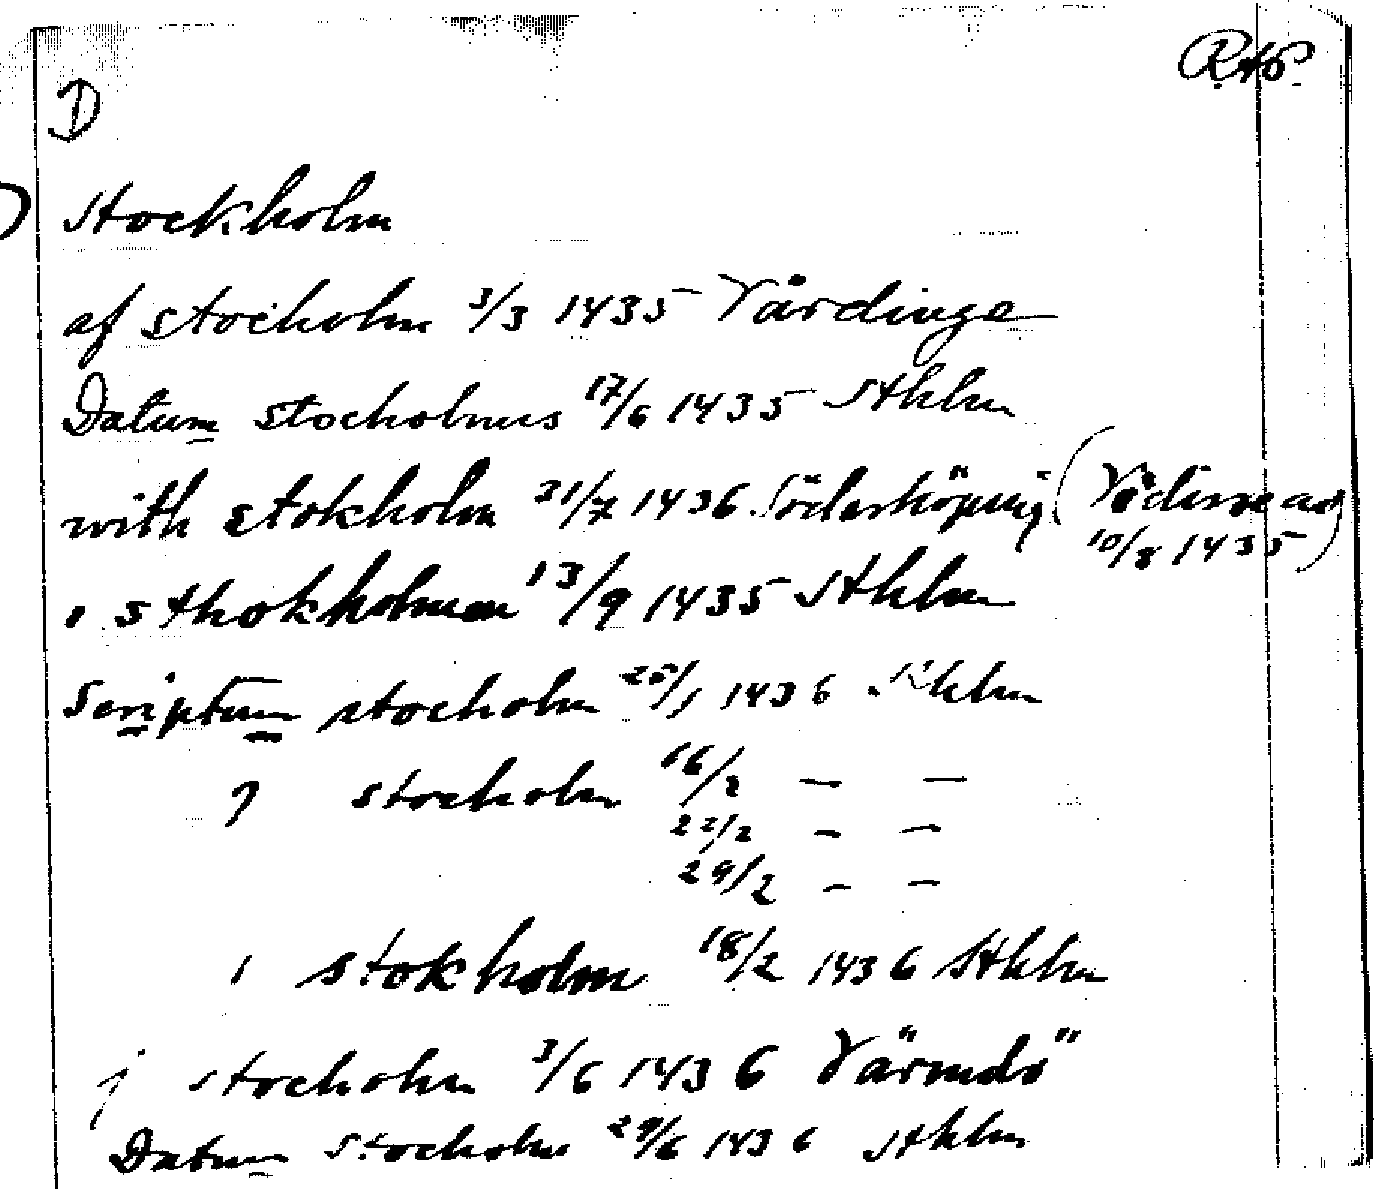 D
Stockholm
af stocholm 3/3 1435 Vårdinge
Datum stocholmis 17/6 1435 Sthlm
with stokholm 21/7 1436 Söderköping (
10/8 1435)
i sthokholmen 13/9 1435 Sthlm
Scriptum stocholm 25/1 1436 Sthlm
j stocholm 16/2 — —
22/2 — —
29/2 — —
i stokholm 18/2 1436 Sthlm
j stocholm 3/6 1436 Värmdö
Datum stocholm 29/6 1436 Sthlm